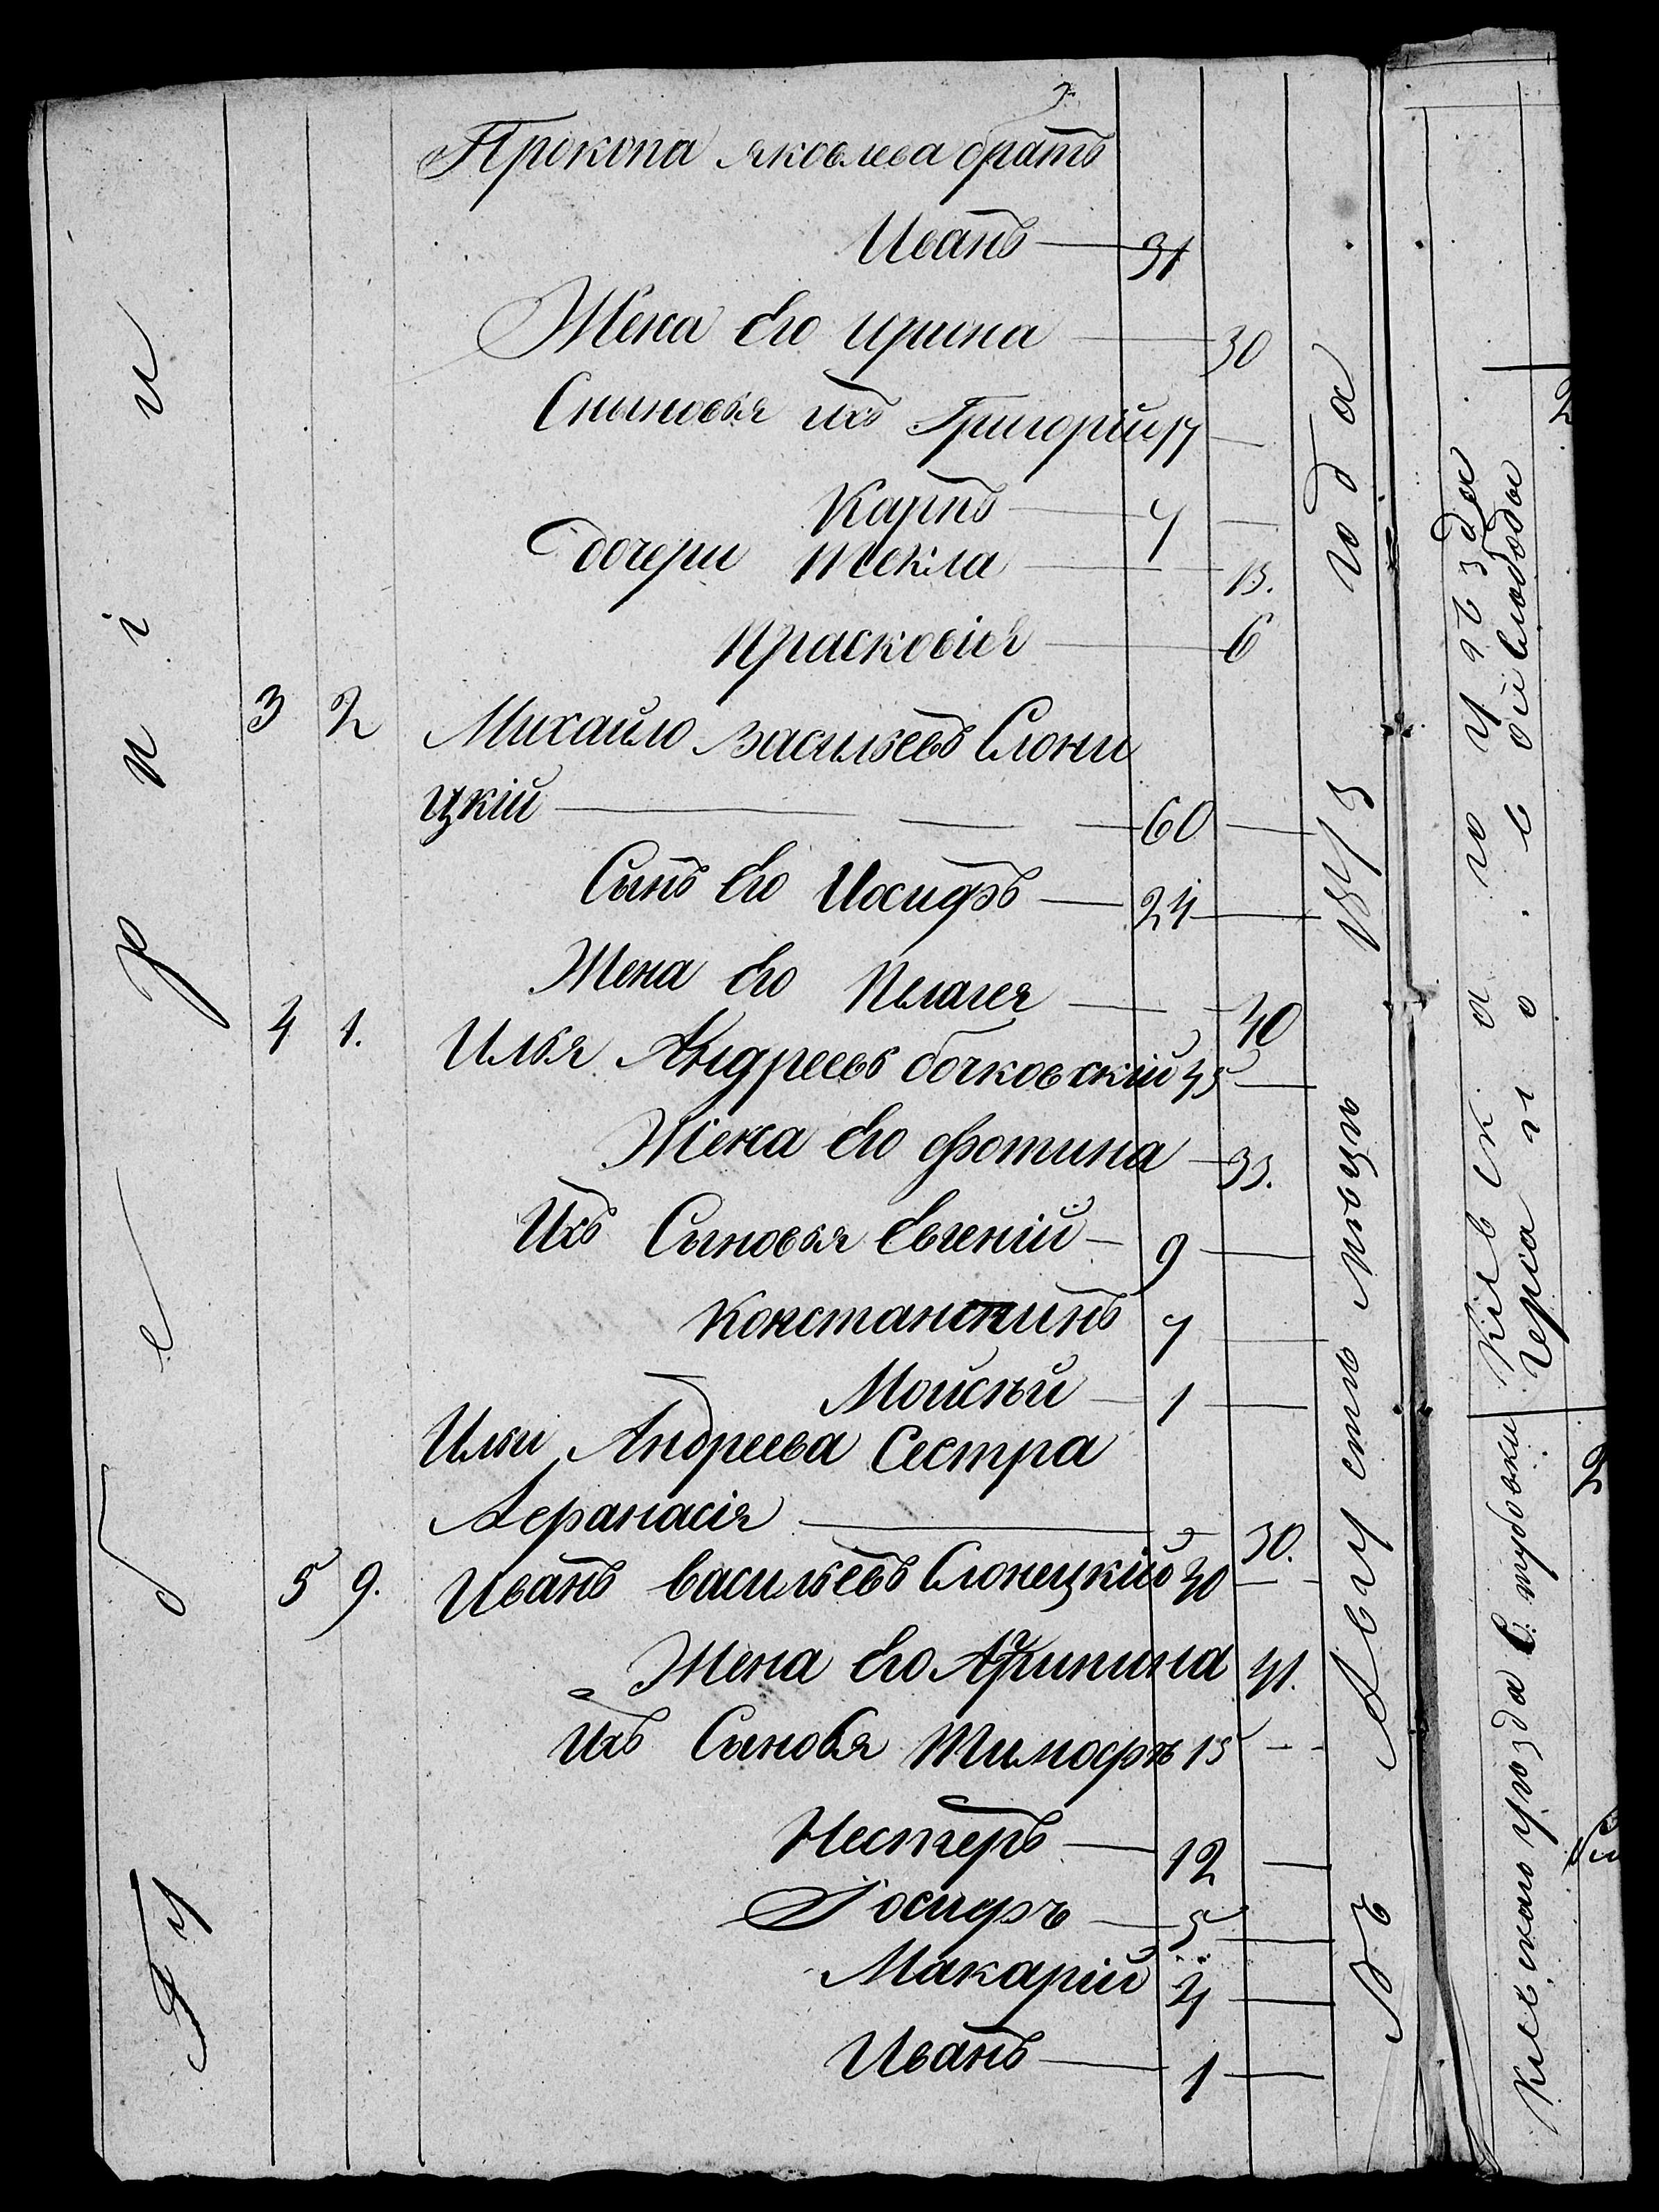 Прокопа яковлева братъ
Иванъ — 31
Жена его ирина — 30
Сыновья ихъ Григорій 17 —
Карпъ — 7 —
дочери Текла — 13.
Прасковія — 6
3 2 Михайло васильевъ Слони
цкій — 60 —
Сынъ его Иосифъ — 24 —
Жена его Пелагея — 40
4 1. Илья Андреевъ бочковскій 45 —
Жена его Фотина — 33.
Ихъ Сыновья Евгеній — 9 —
Константинъ 7 —
Моисѣй — 1 —
Ильи Андреева Сестра
Афанасія — 30.
5 9. Иванъ васильевъ Слонецкій 40 —
Жена его Акилина 41.
Ихъ Сыновя Тимофѣ 15 —
Нестеръ — 12 —
Іосифъ — 5 —
Макарій 4 —
Иванъ — 1 —
Губерніи
Въ Августѣ мѣсяцѣ
года
Кіевскаго уѣзда
слободы
Кіевскаго уѣзда С.
2
2